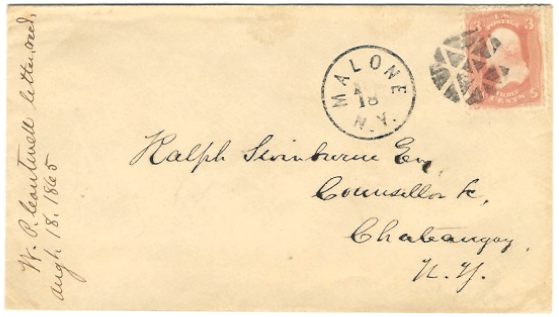 W. P. Cantwell letter, recd,
augh 18. 1865
MALONE
18
N.Y.
3 U.S. 3
THREE
CENTS
Ralph Swinburne Esq
Counsellor &c,
Chateaugay,
N. Y.